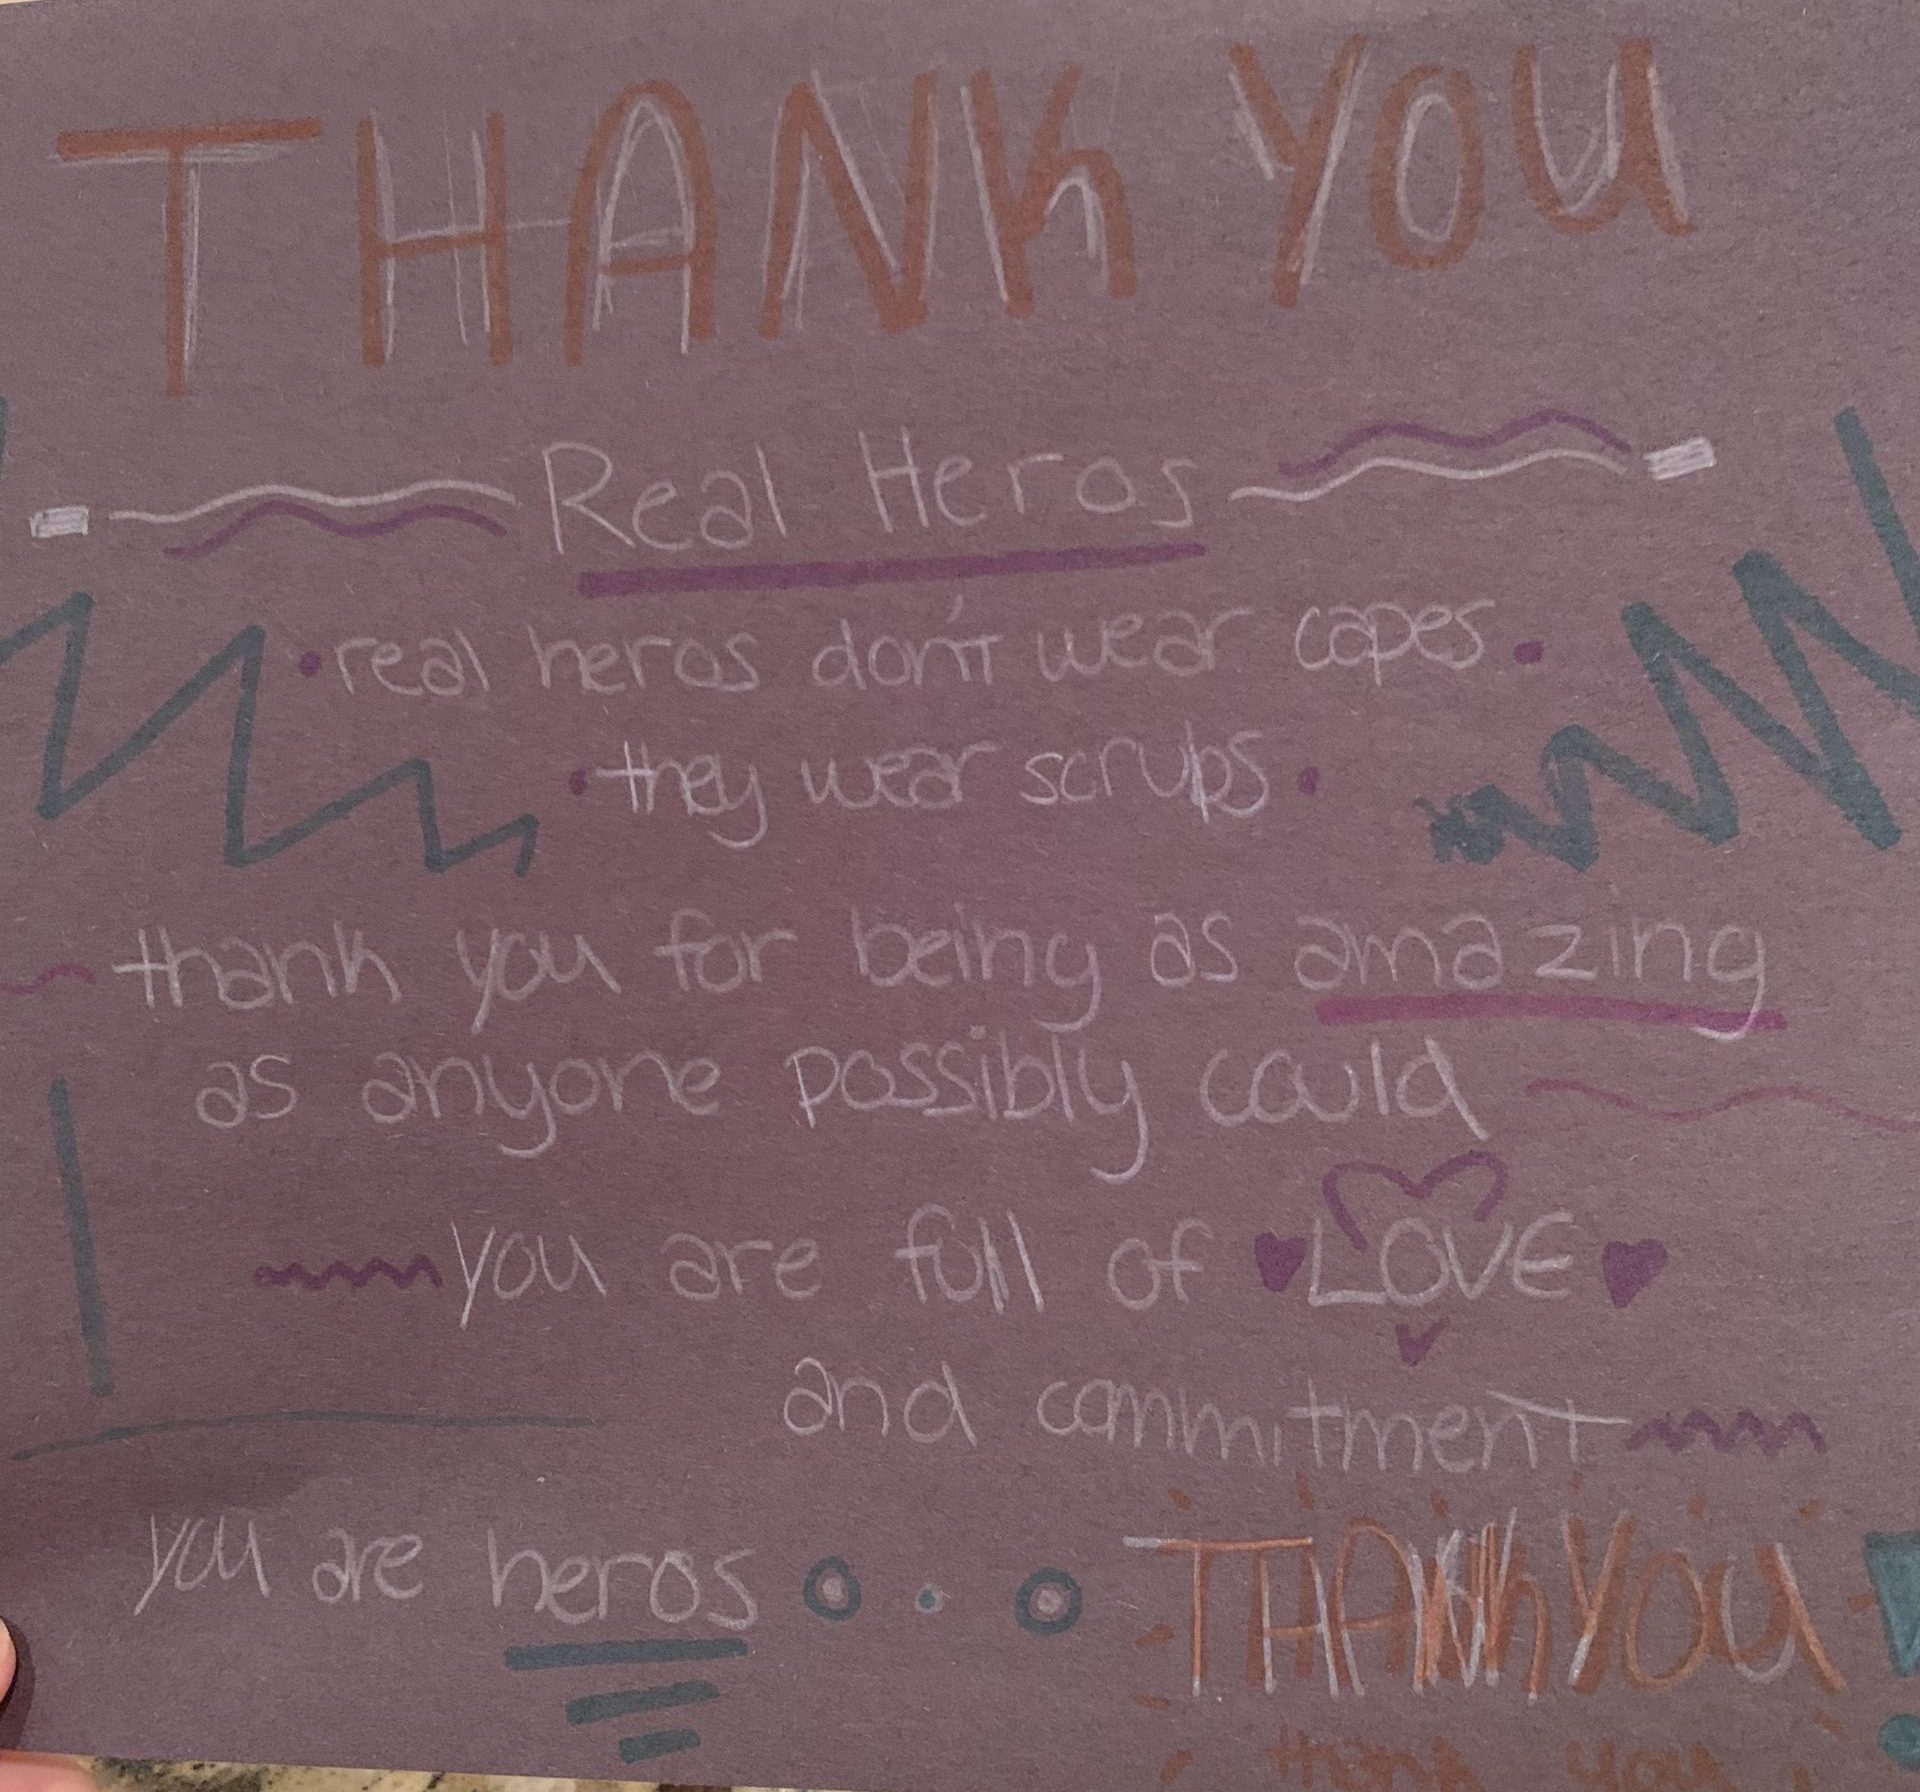 THANK YOU
Real Heros
real heros don't wear capes
they wear scrubs
thank you for being as amazing
as anyone possibly could
you are full of LOVE
and commitment
you are heros THANK YOU!
thank you